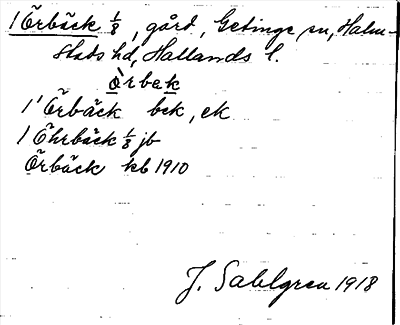 1 Örbäck 1/8, gård, Getinge sn, Halm-
stads hd, Hallands l.
òrbek
1' Örbäck bek, ek
1 Öhrbäck 1/8 jb
Örbäck kb 1910
J. Sahlgren 1918